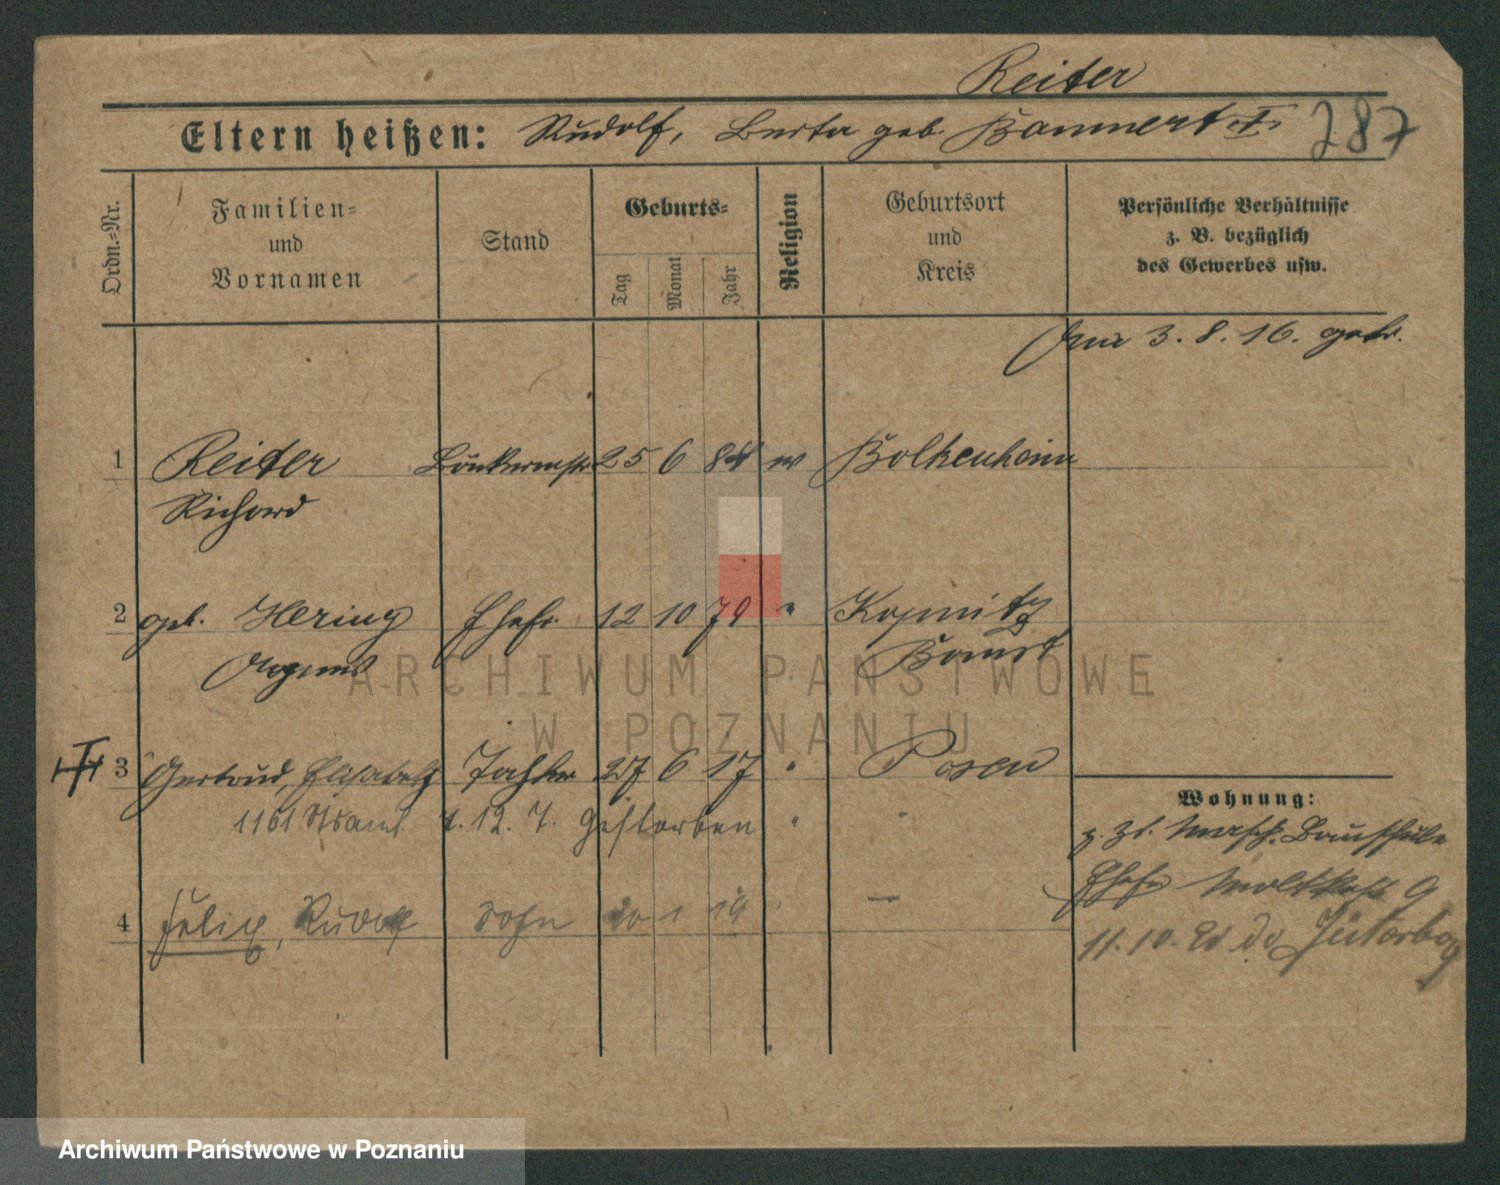 Reiter
Eltern heißen: Rudolf, Berta geb. Bammert † 287
Ordn.-Nr.
Familien-
und
Vornamen
Stand
Geburts-
Tag
Monat
Jahr
Religion
Geburtsort
und
Kreis
Persönliche Verhältnisse
z. B. bezüglich
des Gewerbes usw.
3. 8. 16. getr.
1 Reiter 25 6 84 Bolkenhain
Richard
2 geb. Hering Ehefr. 12 10 79 " Kopnitz
Bomst
3 Gertrud, Elisabeth Tochter 27 6 17 " Posen
1161 St. amt. †. 12. 7. Gestorben "
4 Felix, Rudolf Sohn 20 1 19 —
Wohnung:
z. Zt. Masch. Bauschule
Ehefr. Moltkestr 9
11. 10. 20 do Jüterbog
ARCHIWUM PAŃSTWOWE
W POZNANIU
Archiwum Państwowe w Poznaniu